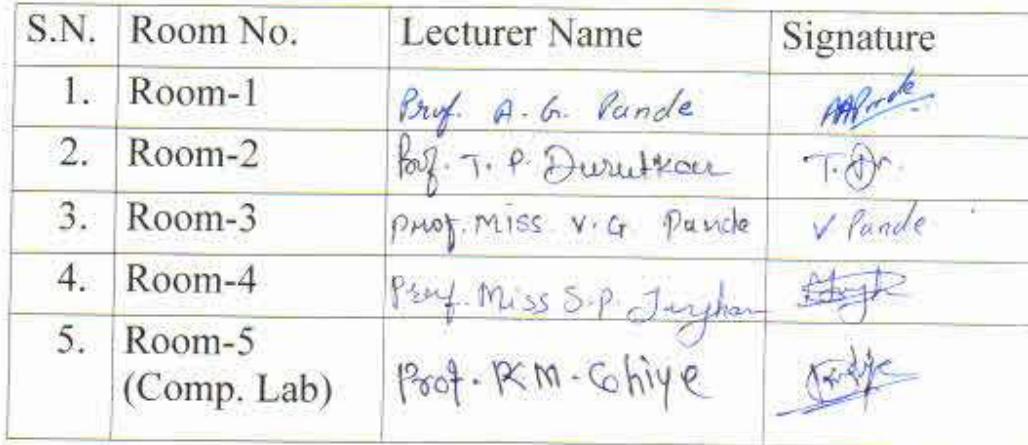 S.N. Room No. Lecturer Name Signature
1. Room-1 Prof. A. G. Pande
2. Room-2 Prof. T. P. Durutkar T. Dr.
3. Room-3 Prof. Miss V. G. Pande V Pande
4. Room-4 Prof. Miss S. P.
5. Room-5 Prof. R M.
(Comp. Lab)